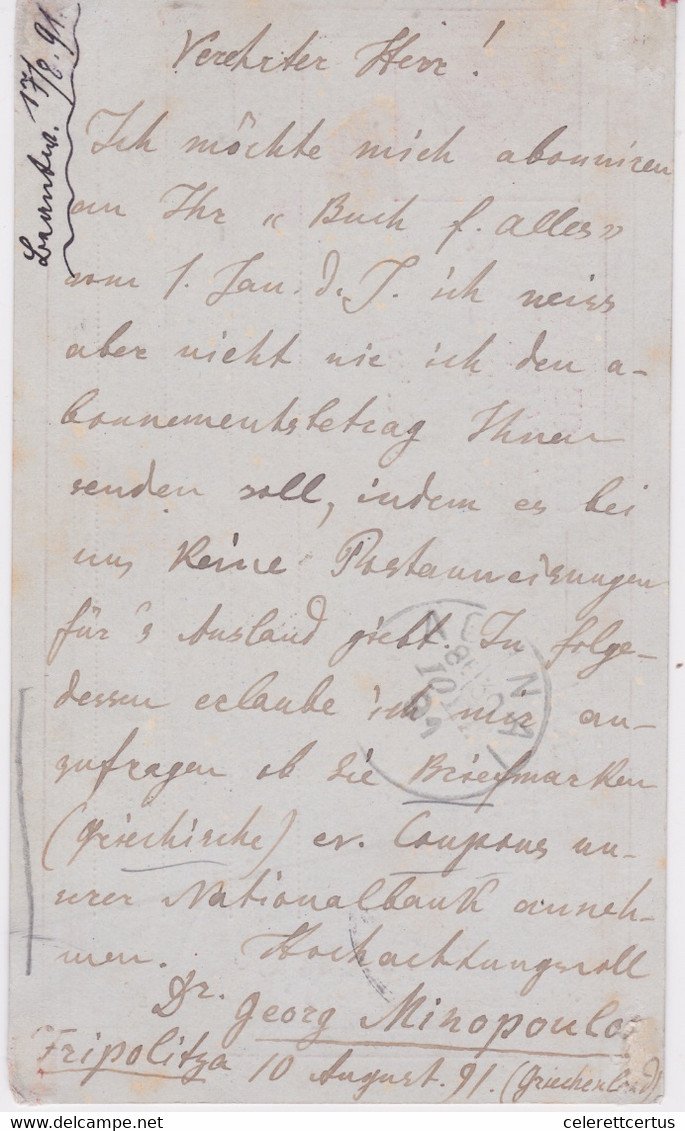 Beantw. 17/8.91.
Verehrter Herr!
Ich möchte mich abonniren
an Ihr « Buch f. alles»
vom 1. Jan. d. J. ich weiss
aber nicht wie ich den a-
bonnementsbetrag Ihnen
senden soll, indem es bei
uns keine Postanweisungen
für's Ausland giebt. In folge-
dessen erlaube ich mir an-
zufragen ob Sie Briefmarken
(griechische) ev. Coupons un-
serer Nationalbank anneh-
men. Hochachtungsvoll
Dr. Georg Minopoulos
Tripolitza 10 August. 91. (Griechenland)
celerettcertus